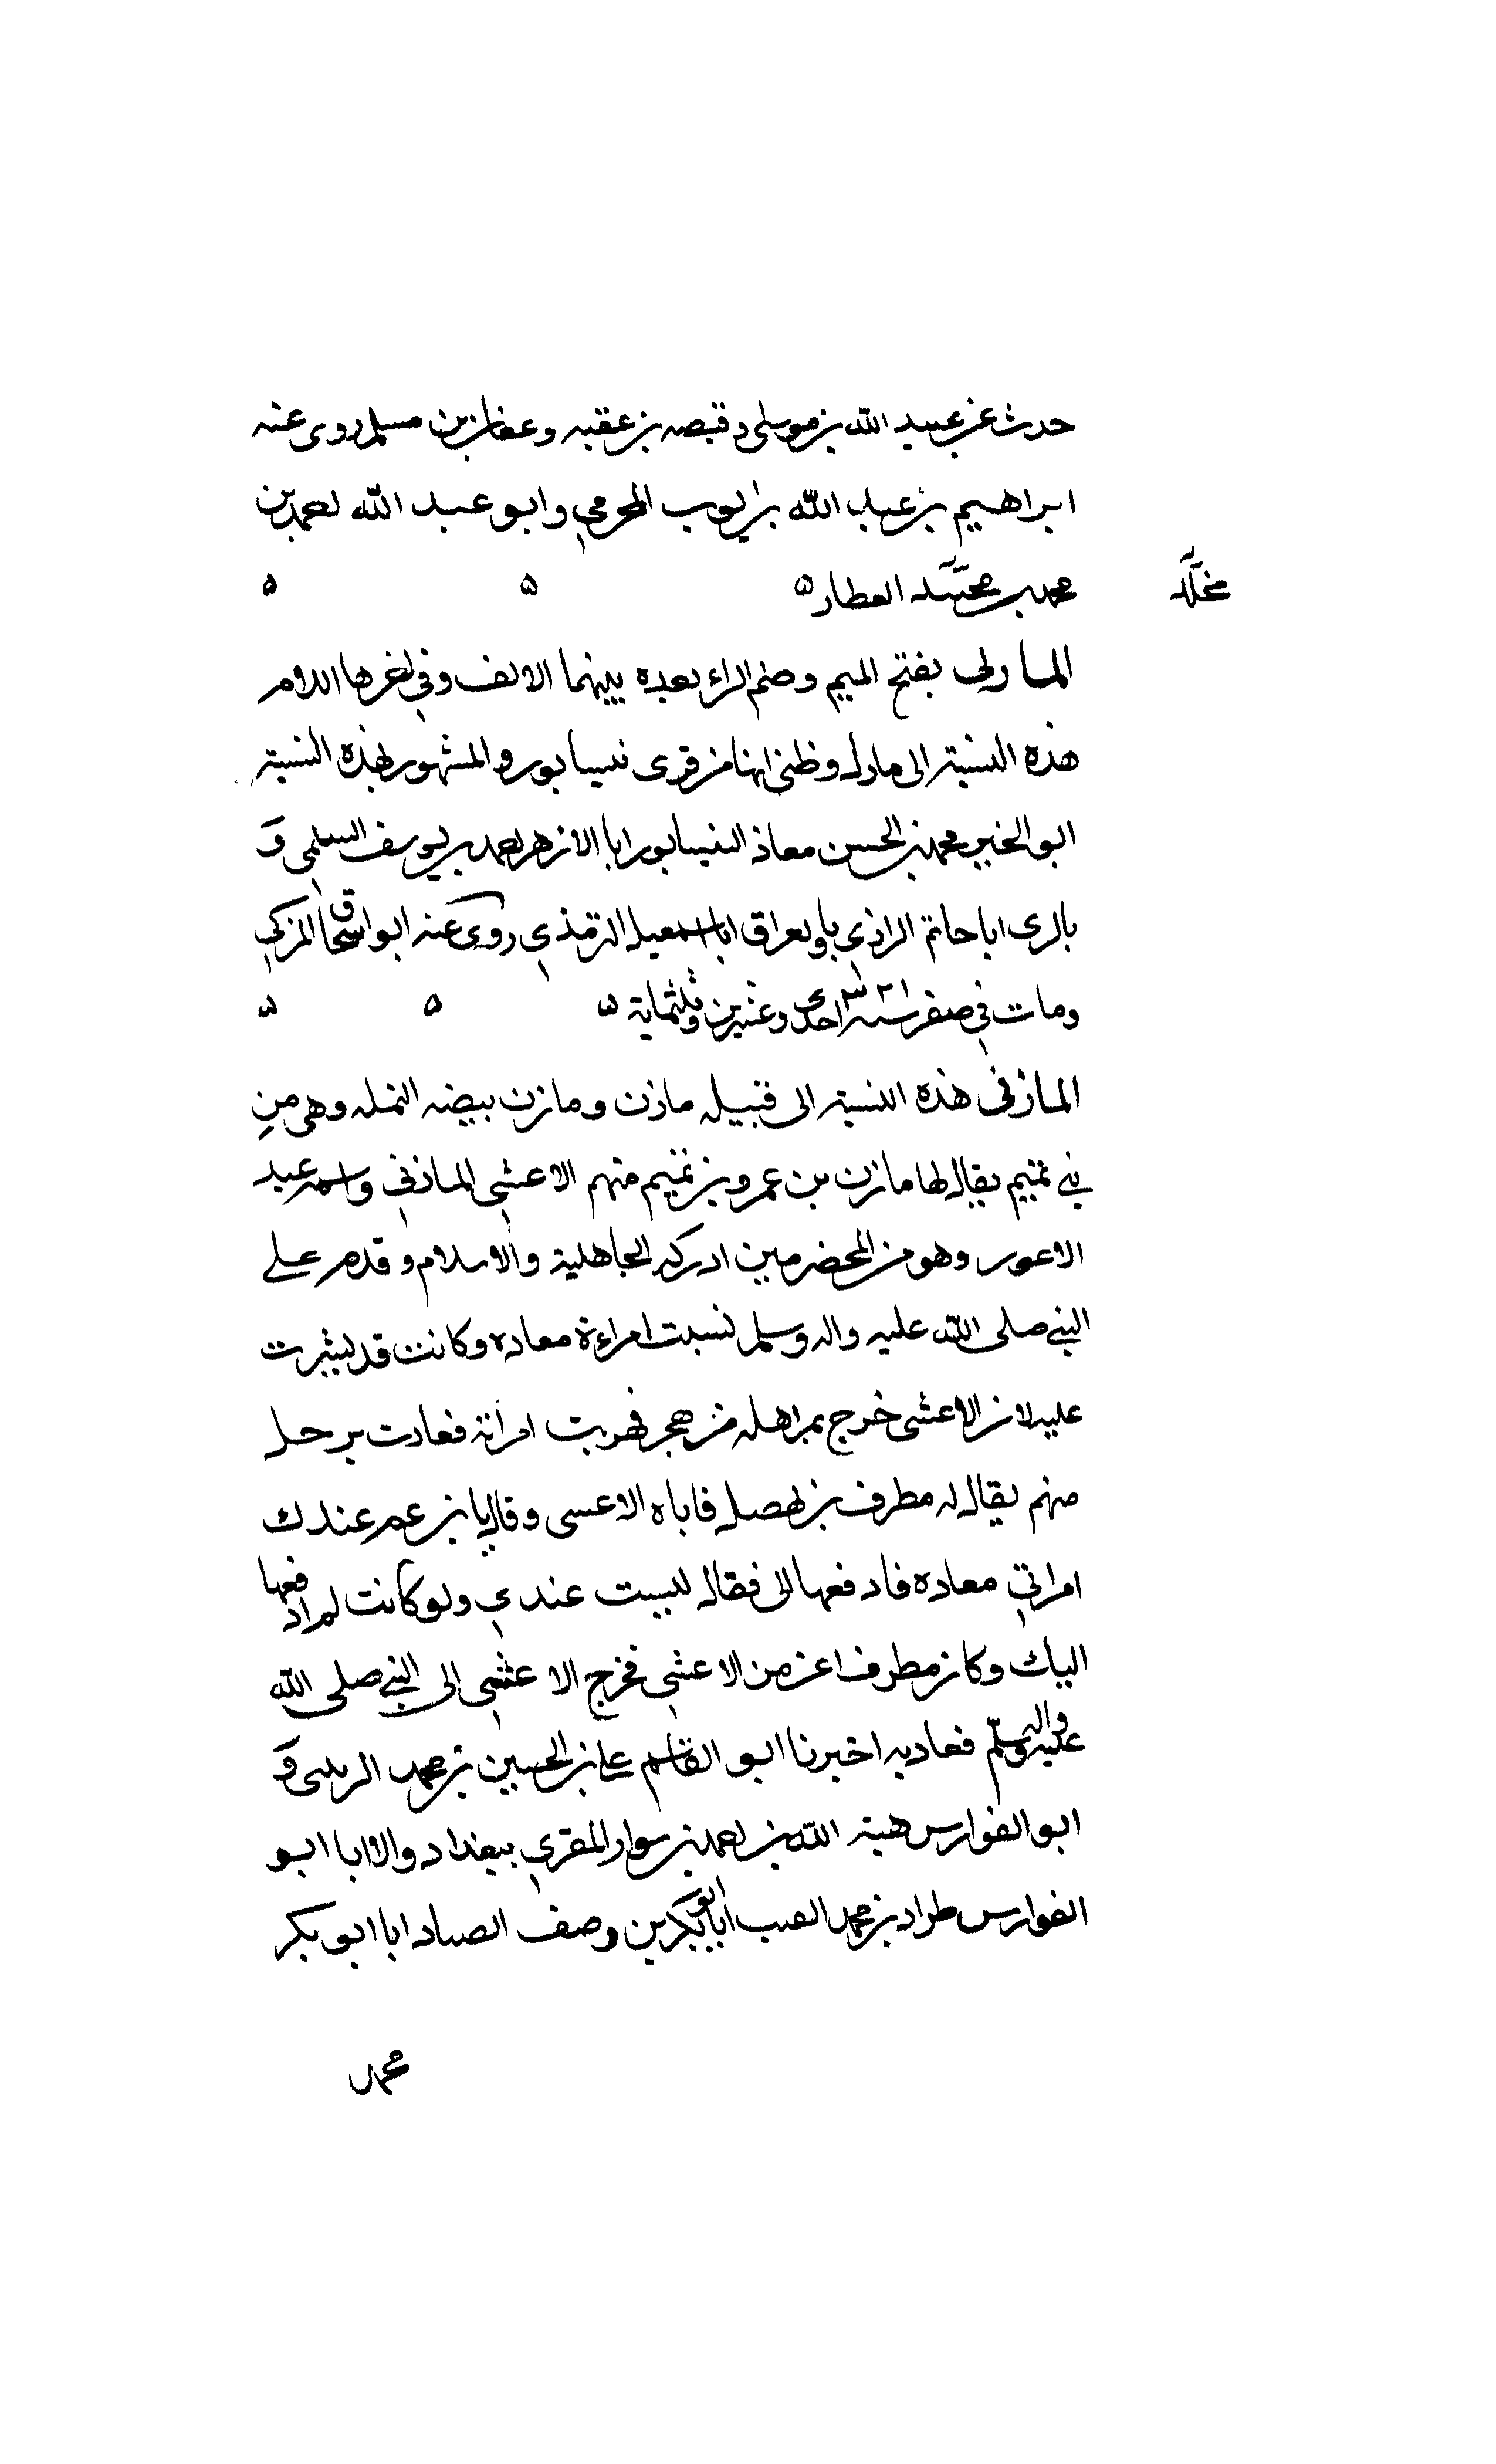 حدث عن عبيد الله بن موسى وقبصه بن عقبه وعفان بن مسلم روى عنه
ابراهيم بن عبد الله بن ايوب المخرمي وابو عبد الله احمد بن
محمد بن مخلد العطار ه ه ه
مخلد
المارلى بفتح الميم وضم الراء بعده بينهما الالف وفي اخرها اللام
هذه النسبة الى مارل وظني انها من قرى نيسابور والمشهور بهذه النسبة
ابو الحسن محمد بن الحسن معاذ النيسابور ابا الازهر احمد بن يوسف السلمي و
بالرى ابا حاتم الرازي وبالعراق ابا اسمعيل الترمذي روى عنه ابو اسحاق المزكي
ومات في صفر سنة ٣٢١ احدى وعشرين وثلثماية ه ه ه
المازنى هذه النسبة الى قبيله مازن ومازن بيضه النمله وهى من
بني تميم يقال لها مازن بن عمرو بن تميم منهم الاعشى المازني واسمه عبد
الاعور وهو من المخضرمين ادرك الجاهلية والاسلام وقدم على
النبي صلى الله عليه واله وسلم نسبت امراءة معاده وكانت قد نشرت
عليه لان الاعشى خرج يمر اهله من هجر فهربت امرأته فعادت برجل
منهم يقال له مطرف بن لهصل فاباه الاعسى وقال يا بن عم عندك
امراتي معاده فادفعها الى فقال ليست عندي ولو كانت لم ادفعها
اليك وكان مطرف اعز من الاعشى فخرج الاعشى الى النبي صلى الله
عليه واله وسلم فعاد به اخبرنا ابو القاسم علي بن الحسين بن محمد الرسى و
ابو الفوارس هبة الله بن احمد بن سوار المقري ببغداد والا ابا ابو
الفوارس طراد بن محمد العب ابا ابو بكر بن وصف الصاد ابا ابو بكر
محمد